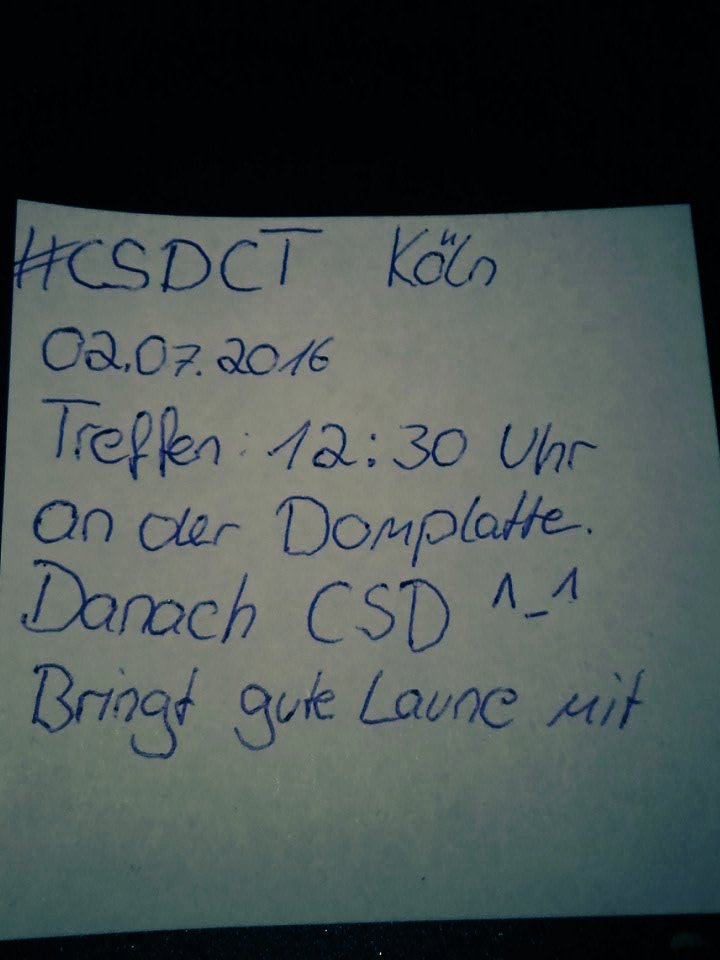 #CSDCT Köln
02.07.2016
Treffen: 12:30 Uhr
an der Domplatte.
Danach CSD ^_^
Bringt gute Laune mit